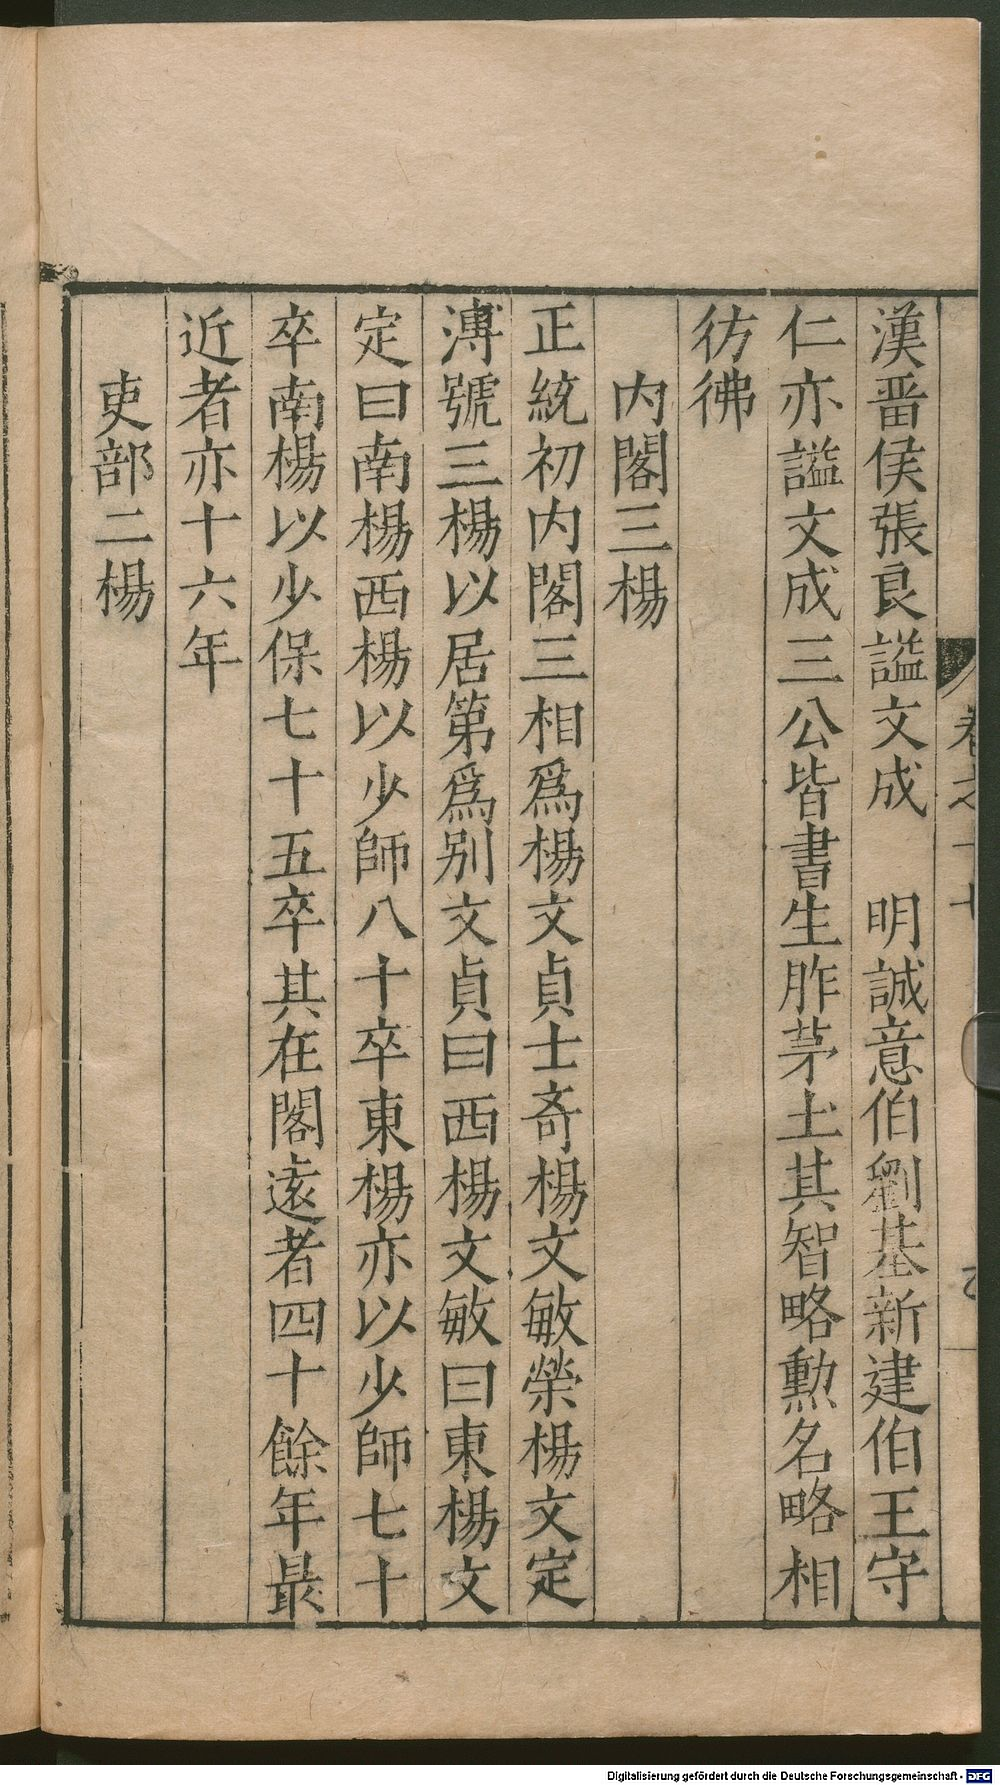 漢晋侯張良謚文成　明誠意伯劉基新建伯王守
仁亦謚文成三公皆書生胙茅土其智略勲名略相
彷彿
内閣三楊
正統初内閣三相爲楊文貞士奇楊文敏榮楊文定
溥號三楊以居第爲别文貞曰西楊文敏曰東楊文
定曰南楊西楊以少師八十卒東楊亦以少師七十
卒南楊以少保七十五卒其在閣逺者四十餘年最
近者亦十六年
吏部二楊
卷之十七
Digitalisierung gefördert durch die Deutsche Forschungsgemeinschaft - DFG